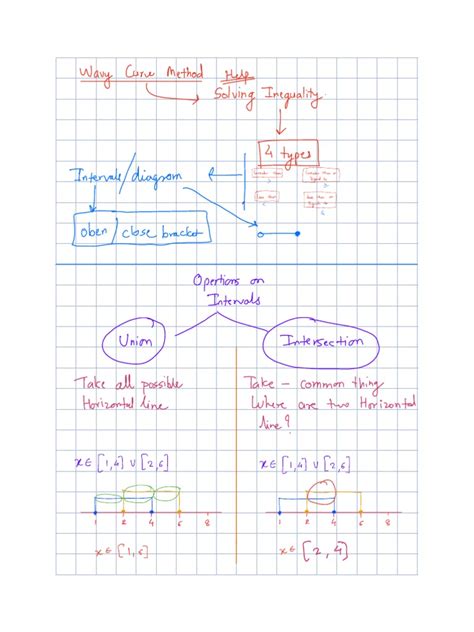 Wavy Curve Method Help
Solving Inequality
4 types
Intervals/diagram
Less than
open/close bracket
Opertions on
Intervals
Union
Intersection
Take all possible
Horizontal line
Take - common thing
Where are two Horizontal
line?
x∈[1,4] ∪ [2,6]
x∈[1,4] ∪ [2,6]
1 2 4 6 8
1 2 4 6 8
x∈[1,6]
x∈[2,4]